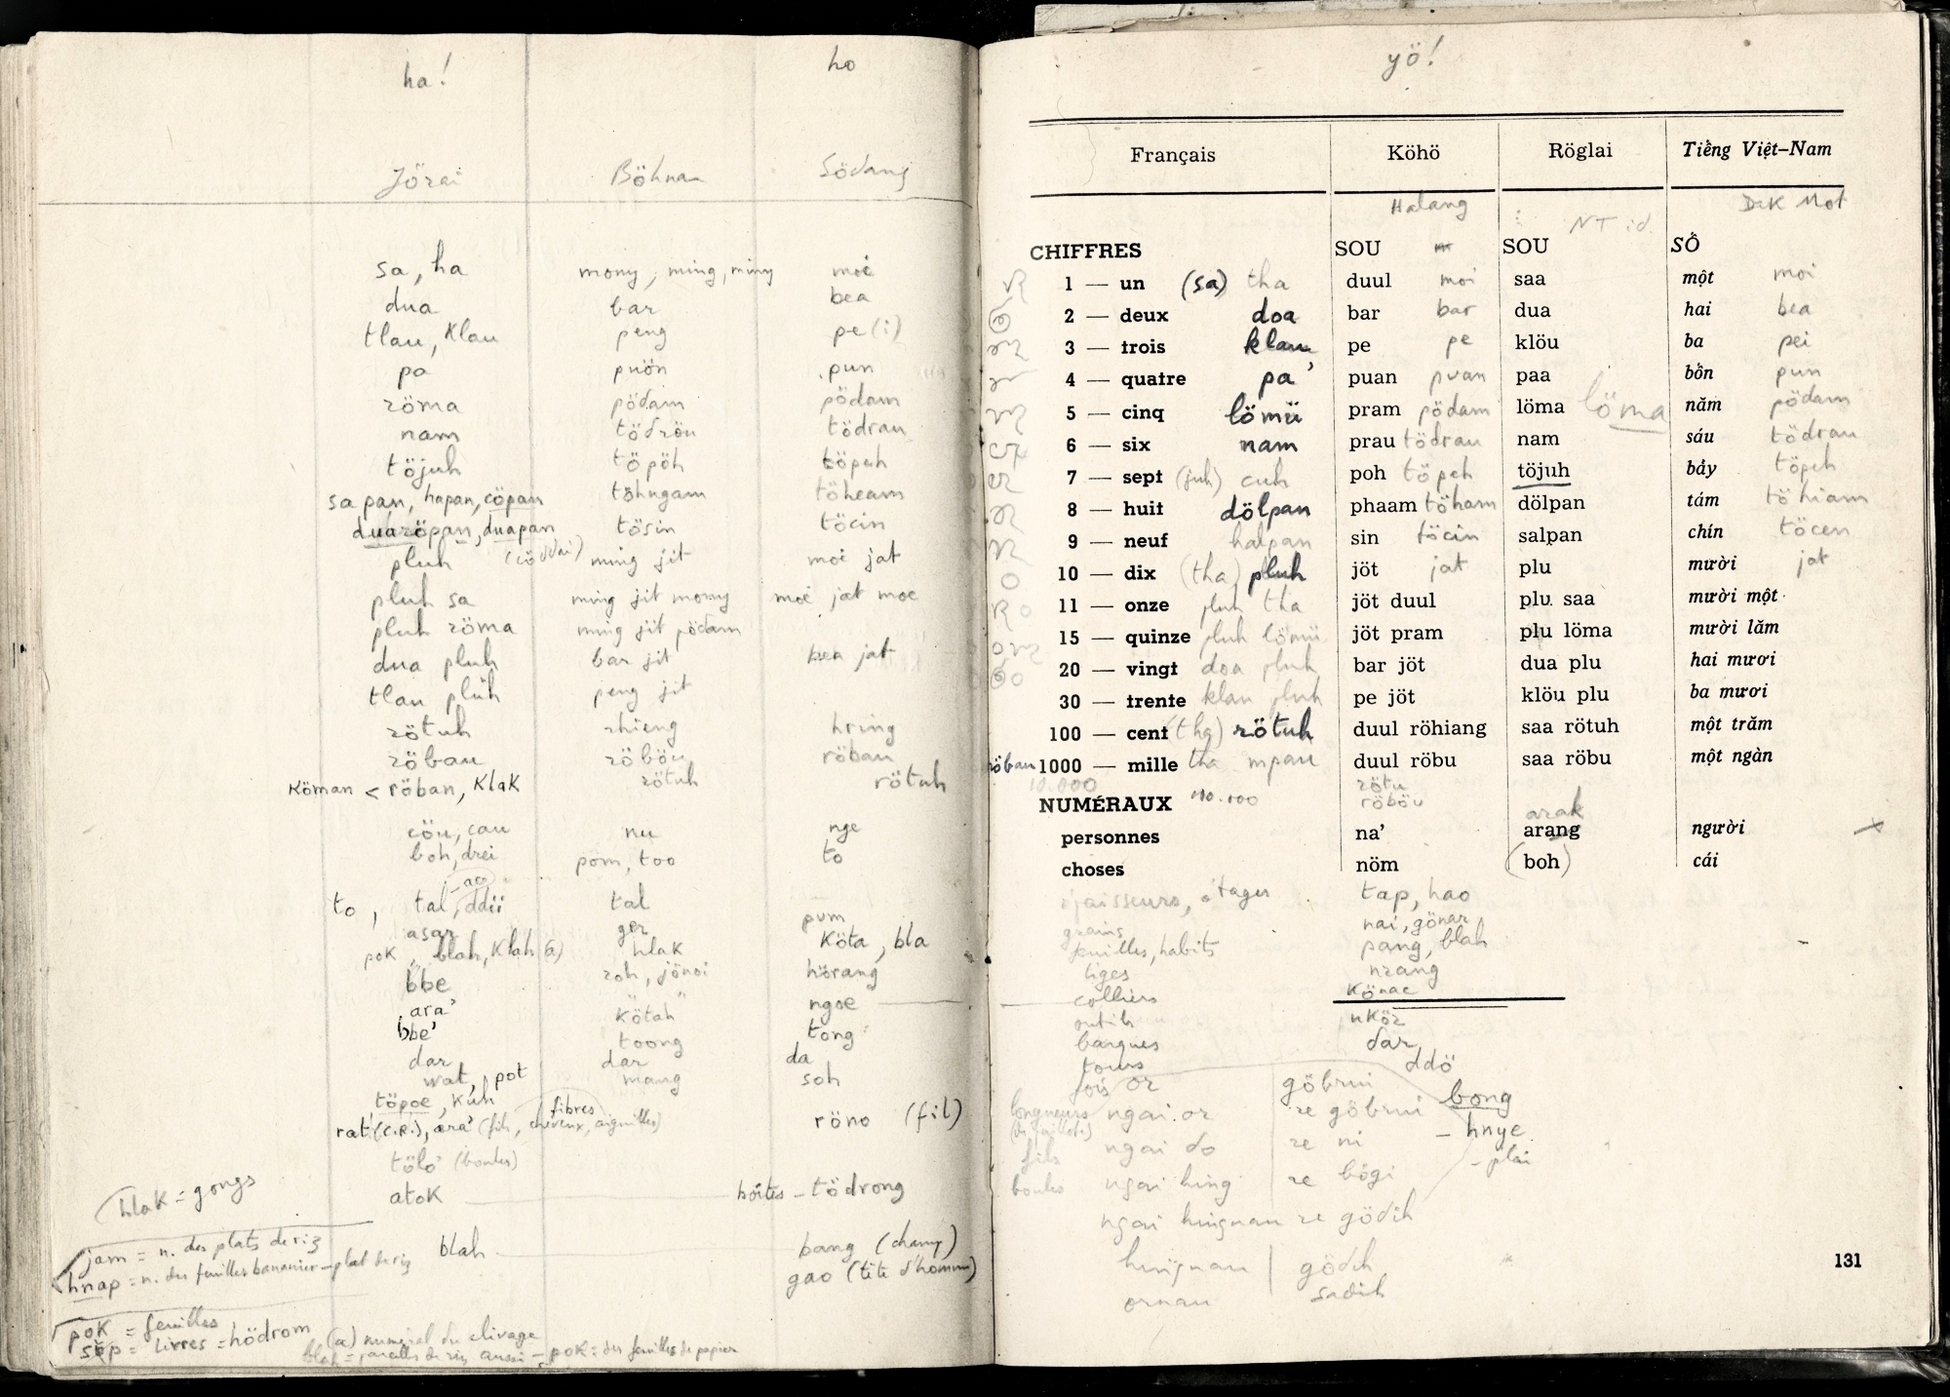 ha!
ho
Jörai
Böhnar
Södang
sa, ha
mony, ming, miny
moi
dua
bar
bea
tlau, Klau
peng
pe (i)
pa
puön
pun
röma
pödam
pödam
nam
tödröu
tödrau
töjuh
töpöh
töpeh
sa pan, hapan, cöpan
töhngam
töheam
duaröpan, duapan
tösin
töcin
pluh
ming jit
moi jat
pluh sa
ming jit mony
moi jat moe
pluh röma
ming jit pödam
dua pluh
bar jit
bea jat
tlau pluh
peng jit
rötuh
rhieng
hring
röbau
röböu
röban
Köman < röban, Klak
rötuh
rötuh
cöu, cau
nu
nge
boh, drei
pom, too
to
to, tal, ddii
tal
pum
asar
ger
pok, blah, Klah (a)
hlak
Köta, bla
bbe
roh, jönoi
hörang
ara'
"Kötah"
ngoe
bbe'
toong
tong
dar
dar
da
wat, pot
mang
soh
töpoe, Kuh
fibres
rat (C.R.), ara' (fils, cheveux, aiguilles)
röno (fil)
tölö' (boules)
hlak = gongs
atok
boîtes - tödrong
jam = n. des plats de riz
blah
bang (champ)
hnap = n. des feuilles bananier - plat de riz
gao (tête d'homme)
pok = feuilles
söp = livres = hödrom
(a) numéral du clivage
pok = des feuilles de papier
yö!
Français
Köhö
Röglai
Tiếng Việt-Nam
Halang
NT id.
Dak Mot
CHIFFRES
SOU
SOU
SỐ
1 — un (sa) tha
duul moi
saa
một moi
2 — deux doa
bar bar
dua
hai bea
3 — trois klau
pe pe
klöu
ba pei
4 — quatre pa'
puan puan
paa
bốn pun
5 — cinq lömü
pram pödam
löma löma
năm pödam
6 — six nam
prau tödrau
nam
sáu tödrau
7 — sept (juh) cuh
poh töpeh
töjuh
bảy töpeh
8 — huit dölpan
phaam töham
dölpan
tám töhiam
9 — neuf halpan
sin töcin
salpan
chín töcen
10 — dix (tha) pluh
jöt jat
plu
mười jat
11 — onze pluh tha
jöt duul
plu saa
mười một
15 — quinze pluh lömü
jöt pram
plu löma
mười lăm
20 — vingt doa pluh
bar jöt
dua plu
hai mươi
30 — trente klau pluh
pe jöt
klöu plu
ba mươi
100 — cent (tha) rötuh
duul röhiang
saa rötuh
một trăm
röbau 1000 — mille tha
duul röbu
saa röbu
một ngàn
10.000
rötu
NUMÉRAUX
röböu
arak
personnes
na'
arang
người
choses
nöm
(boh)
cái
otages
tap, hao
grains
nai, gönar
feuilles, habits
pang, blah
tiges
nrang
colliers
Könac
outils
nKör
barques
dar
tours
ddö
fois or
göbrui
longueurs
ngai or
re göbrui
bong
- hnye
fils
ngai do
re ni
- plai
boules
ngai hing
re bögi
ngai hingnau re gödih
hingnau
gödih
ornau
sadih
131